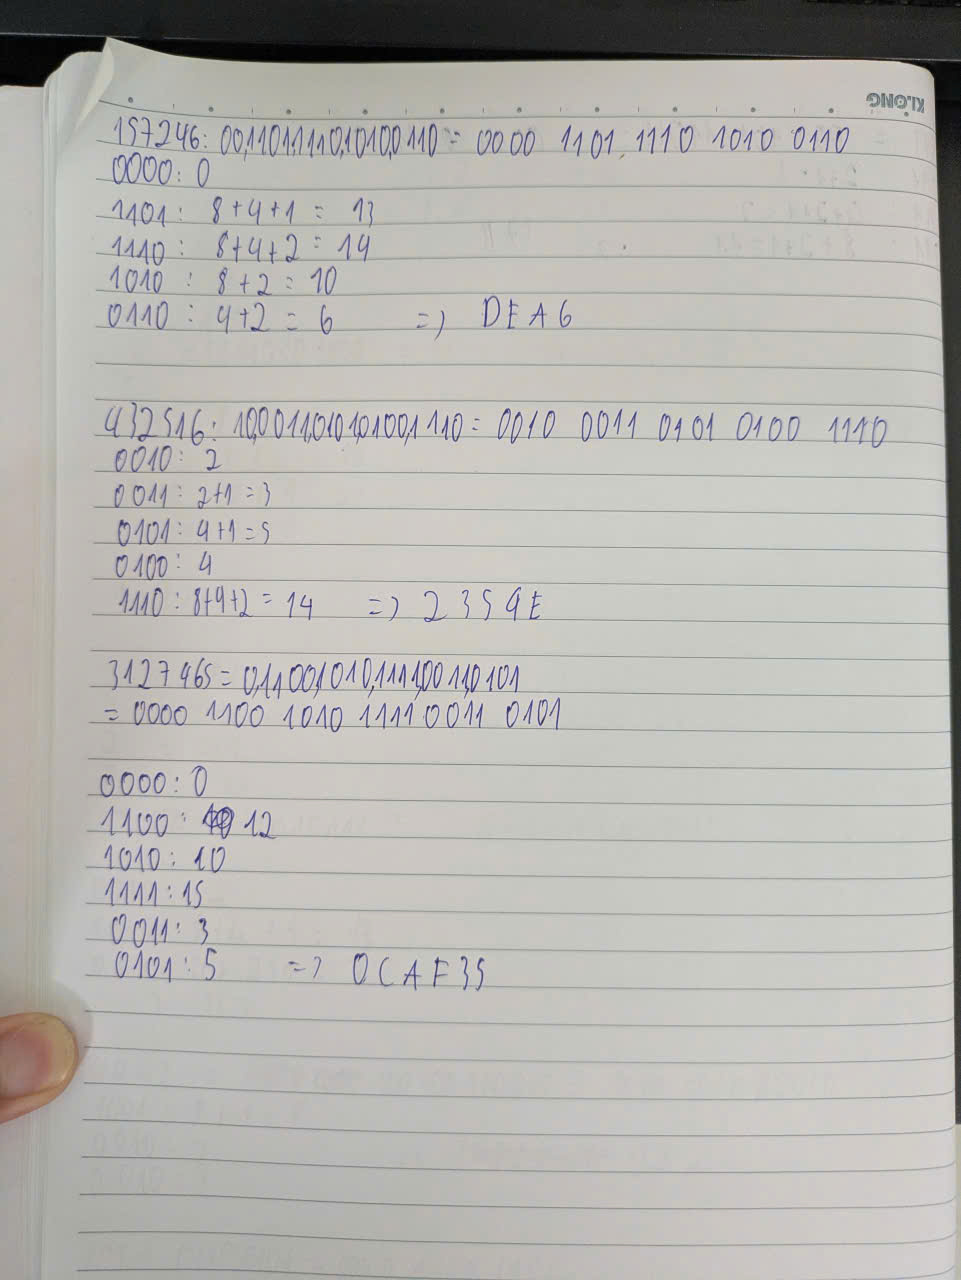 KLONG
157246: 00,110,1,1110,1010,0110 = 0000 1101, 1110 1010 0110
0000: 0
1101: 8+4+1 = 13
1110: 8+4+2 = 14
1010: 8+2 = 10
0110: 4+2 = 6 => DEA6
432516: 10,0011,0101,0100,1110 = 0010 0011 0101 0100 1110
0010: 2
0011: 2+1=3
0101: 4+1=5
0100: 4
1110: 8+4+2 = 14 => 2354E
3127465 = 0,1100,1010,1111,0011,0101
= 0000 1100 1010 1111 0011 0101
0000: 0
1100: 12
1010: 10
1111: 15
0011: 3
0101: 5 => 0CAF35